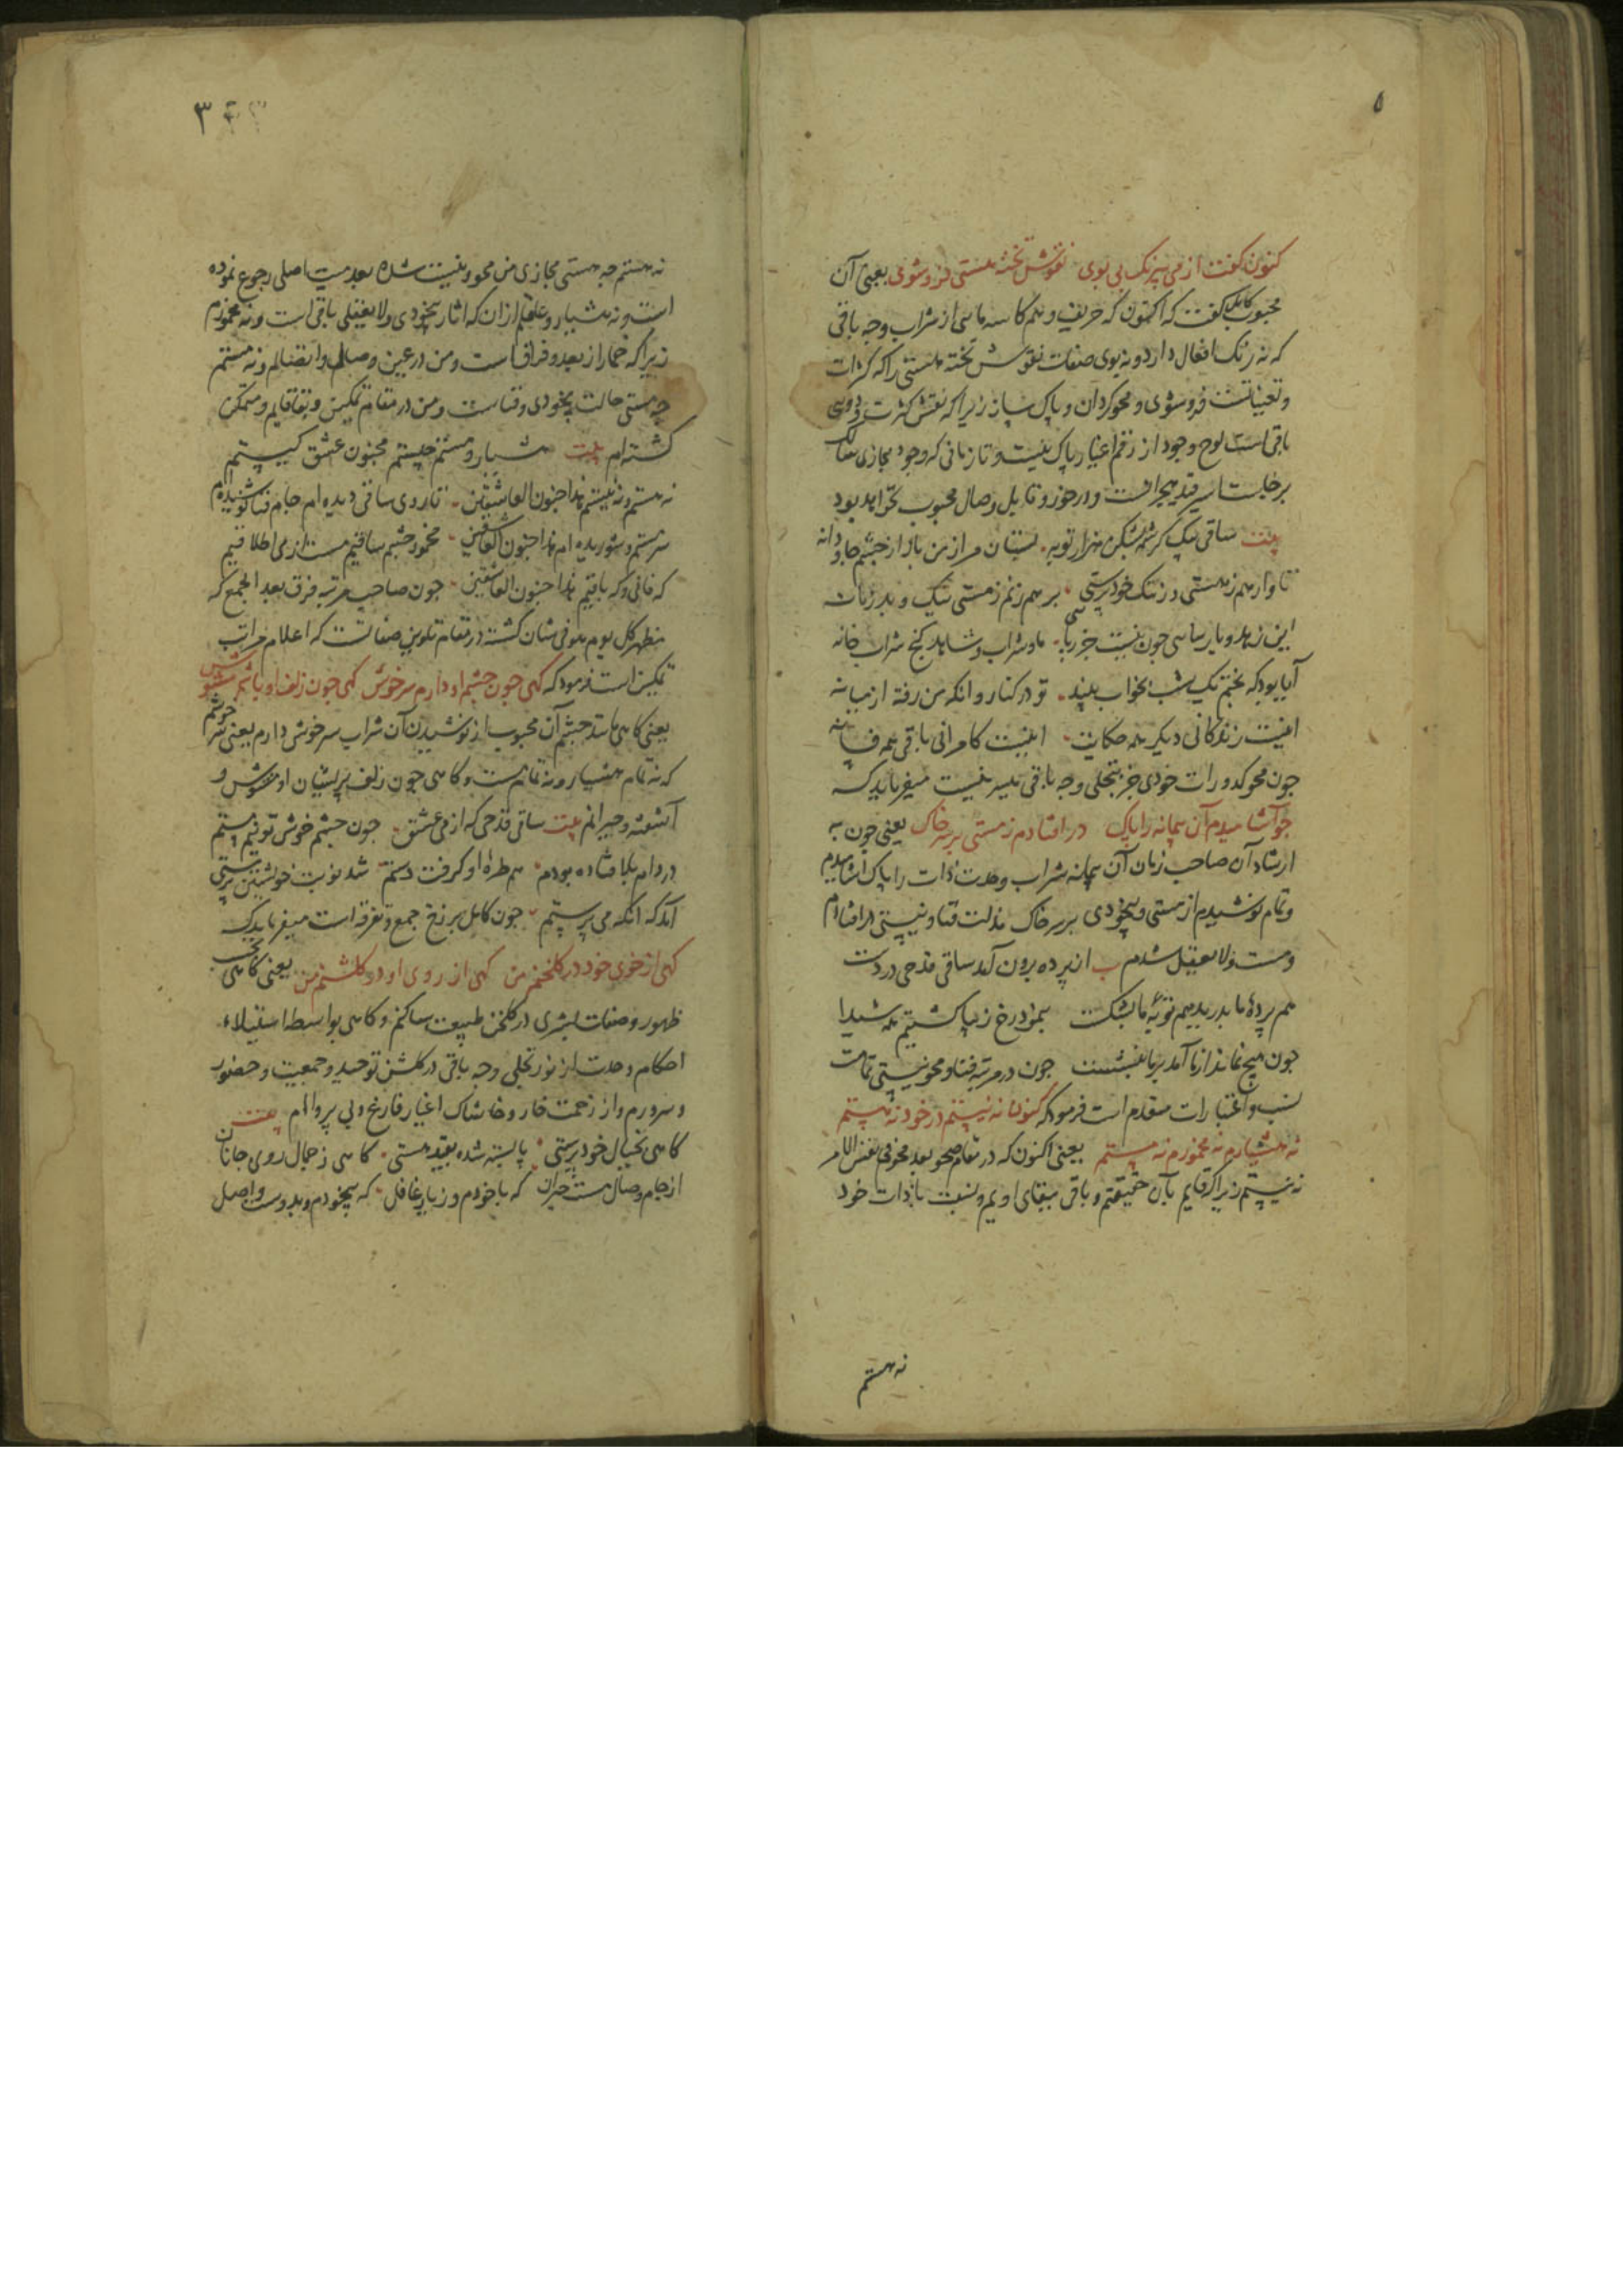 ۵
کنون کفت از می بیرنک بی بوی نقوش تخته هستی فرو شوی یعنی آن
محبوب کامل کفت که اکنون که حریف و هم کاسه مائی از شراب وجه باقی
که نه رنک افعال دارد و نه بوی صفات نقوش تخته هستی را که کثرات
و تعینات فرو شوی و محو کردان و پاک ساز زیرا که نقش کثرت و دوئی
باقی است لوح وجود از رقم اغیار پاک نیست و تا زمانی که وجود مجازی سالک
برخاست اسیر قید هجرانست و در خور و قابل وصال محبوب نخواهد بود
بیت ساقی بیک کرشمه بشکن هزار توبه بستان مرا ز من باز از چشم جاودانه
تا وارهم ز هستی و ز ننک خودپرستی بر هم زنم ز مستی نیک و بد زمانه
این زهد و پارسائی چون نیست جز ریائی ما و شراب و شاهد کنج شراب خانه
آیا بود که بختم یک شب بخواب بیند تو در کنار و آنکه من رفته از میانه
اینست زندکانی دیکر همه حکایت اینست کامرانی باقی همه فسانه
چون محو کدورات خودی جز بتجلی وجه باقی میسر نیست میفرماید که
چو آشامیدم آن پیمانه را پاک در افتادم ز مستی بر سر خاک یعنی چون به
ارشاد آن صاحب زمان آن پیمانه شراب وحدت ذات را پاک آشامیدم
و تمام نوشیدم از مستی و بیخودی بر سر خاک مذلت فنا و نیستی در افتادم
و مست و لا یعقل شدم ب از پرده برون آمد ساقی قدحی در دست
هم پردهٔ ما بدرید هم توبهٔ ما بشکست بنمود رخ زیبا کشتیم همه شیدا
چون هیچ نماند از ما آمد بر ما بنشست چون در مرتبه فنا و محو نیستی تمامت
نسب و اعتبارات منعدم است فرمود که کنون نه نیستم در خود نه هستم
نه هشیارم نه مخمورم نه مستم یعنی اکنون که در مقام صحو بعد محو فی نفس الامر
نه نیستم زیرا که قایم بآن حقیقتم و باقی ببقای اویم و نسبت با ذات خود
نه هستم
۳
نه هستم چه هستی مجازی من محو و نیست شده بعدمیت اصلی رجوع نموده
است و نه هشیار و عاقلم از آن که آثار بیخودی و لا یعقلی باقی است و نه مخمورم
زیرا که خمار از بعد و فراق است و من در عین وصالم و اتصالم و نه مستم
چه مستی حالت بیخودی و فناست و من در مقام تمکین و بقا قایم و متمکن
کشته ام بیت هشیار و مستم چیستم مجنون عشق کیستم
نه هستم و نه نیستم هذا جنون العاشقین تا روی ساقی دیده ام جام فنا نوشیده ام
سرمستم و شوریده ام هذا جنون العاشقین مخمور چشم ساقیم مست از می اطلاقیم
که فانی و که باقیم هذا جنون العاشقین چون صاحب مرتبه فرق بعد الجمع که
مظهر کل یوم هو فی شان کشته در مقام تلوین صفاتست که اعلام مراتب
تمکین است فرمود که کهی چون چشم او دارم سر خوش کهی چون زلف او باشم مشوش
یعنی کاهی مانند چشم آن محبوب از نوشیدن آن شراب سر خوش دارم یعنی سرخوشم
که نه تمام هشیار و نه تمام مست و کاهی چون زلف پریشان او مشوش و
آشفته و حیرانم بیت ساقی قدحی که از می عشق چون چشم خوش تو نیم مستم
در دام بلا فتاده بودم هم طرهٔ او کرفت دستم شد نوبت خویشتن پرستی
آمد که آنکه می پرستم چون کامل برزخ جمع و تفرقه است میفرماید که
کهی از خوی خود در کلخنم من کهی از روی او در کلشنم من یعنی کاهی بحسب
ظهور و صفات بشری در کلخن طبیعت ساکنم و کاهی بواسطه استیلاء
احکام وحدت از نور تجلی وجه باقی در کلشن توحید و جمعیت و حضور
و سرورم و از زحمت خار و خاشاک اغیار فارغ و بی پروا ام بیت
کاهی بخیال خودپرستی پا بسته شده بقید هستی کاهی ز جمال روی جانان
از جام وصال مست حیران که با خودم و ز یار غافل که بیخودم و بدوست واصل